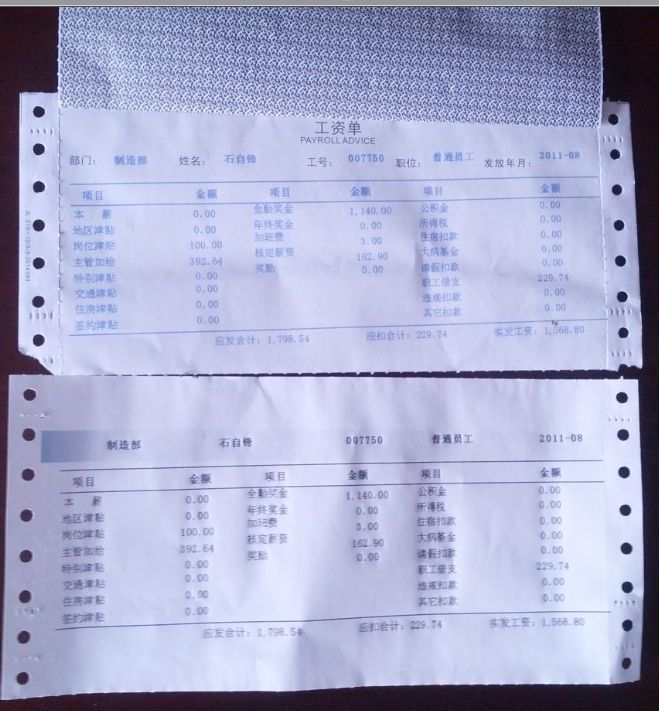 工资单
PAYROLL ADVICE
部门： 制造部 姓名： 石自锋 工号： 007750 职位： 普通员工 发放年月： 2011-08
项目 金额 项目 金额 项目 金额
本 薪 0.00 全勤奖金 1,140.00 公积金 0.00
地区津贴 0.00 年终奖金 0.00 所得税 0.00
岗位津贴 100.00 加班费 3.00 住宿扣款 0.00
主管加给 392.64 核定薪资 162.90 大病基金 0.00
特别津贴 0.00 奖励 0.00 请假扣款 0.00
交通津贴 0.00 职工借支 229.74
住房津贴 0.00 违规扣款 0.00
签约津贴 0.00 其它扣款 0.00
应发合计：1,798.54 应扣合计：229.74 实发工资：1,568.80
制造部 石自锋 007750 普通员工 2011-08
项目 金额 项目 金额 项目 金额
本 薪 0.00 全勤奖金 1,140.00 公积金 0.00
地区津贴 0.00 年终奖金 0.00 所得税 0.00
岗位津贴 100.00 加班费 3.00 住宿扣款 0.00
主管加给 392.64 核定薪资 162.90 大病基金 0.00
特别津贴 0.00 奖励 0.00 请假扣款 0.00
交通津贴 0.00 职工借支 229.74
住房津贴 0.00 违规扣款 0.00
签约津贴 0.00 其它扣款 0.00
应发合计：1,798.54 应扣合计：229.74 实发工资：1,568.80